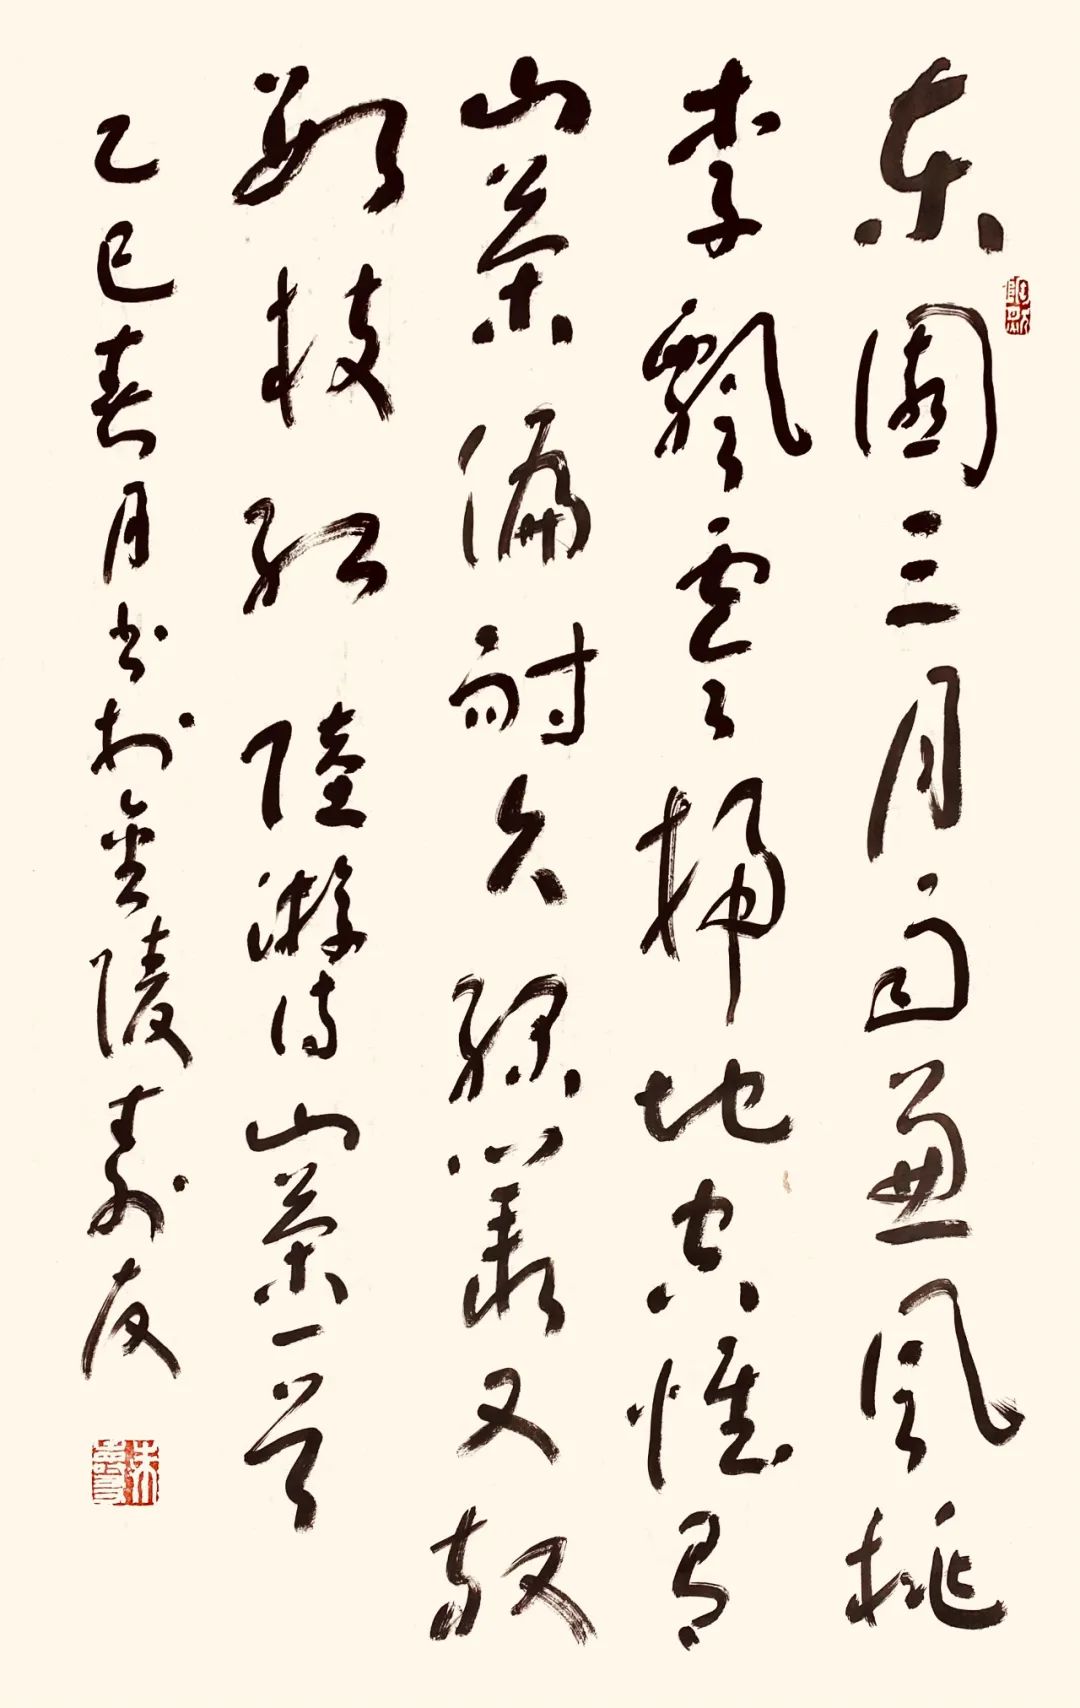 東園三月雨兼風桃
李飄零掃地空惟有
山茶偏耐久綠叢又放
數枝紅 陸游詩山茶一首
乙巳春月書於金陵壽友